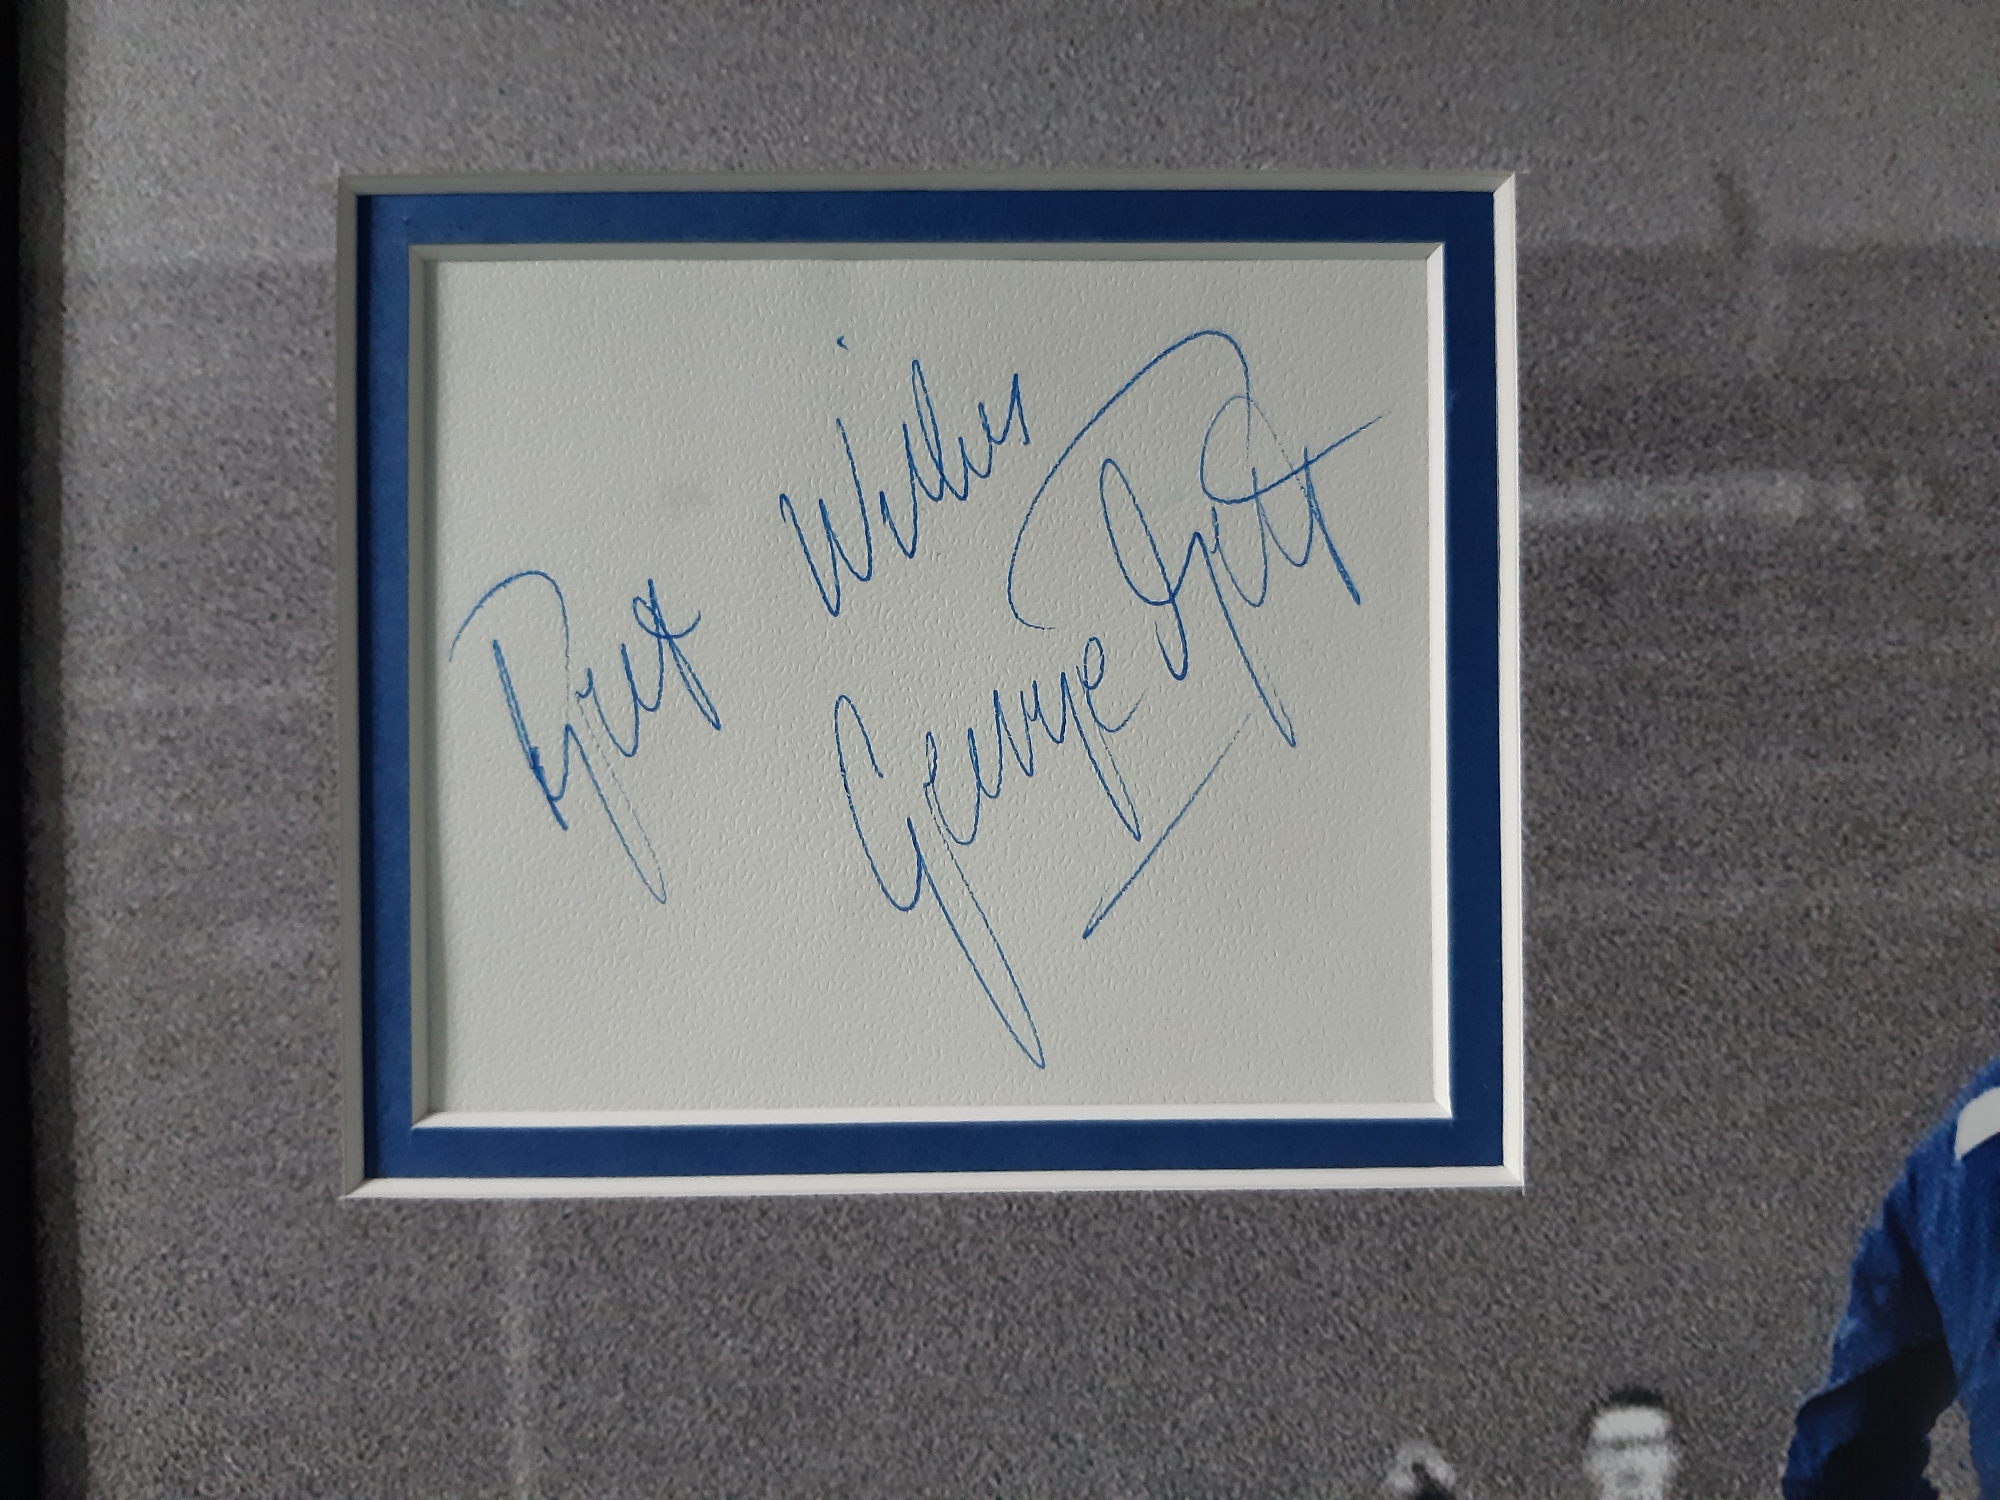 Best Wishes
George Best